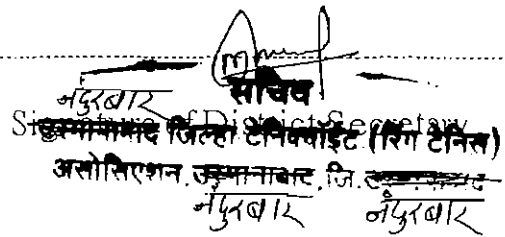 नंदुरबार
सचिव
Signature of District Secretary
उस्मानाबाद जिल्हा टेनिक्वाईट (रिंग टेनिस)
असोसिएशन. उस्मानाबाद, जि. उस्मानाबाद
नंदुरबार नंदुरबार